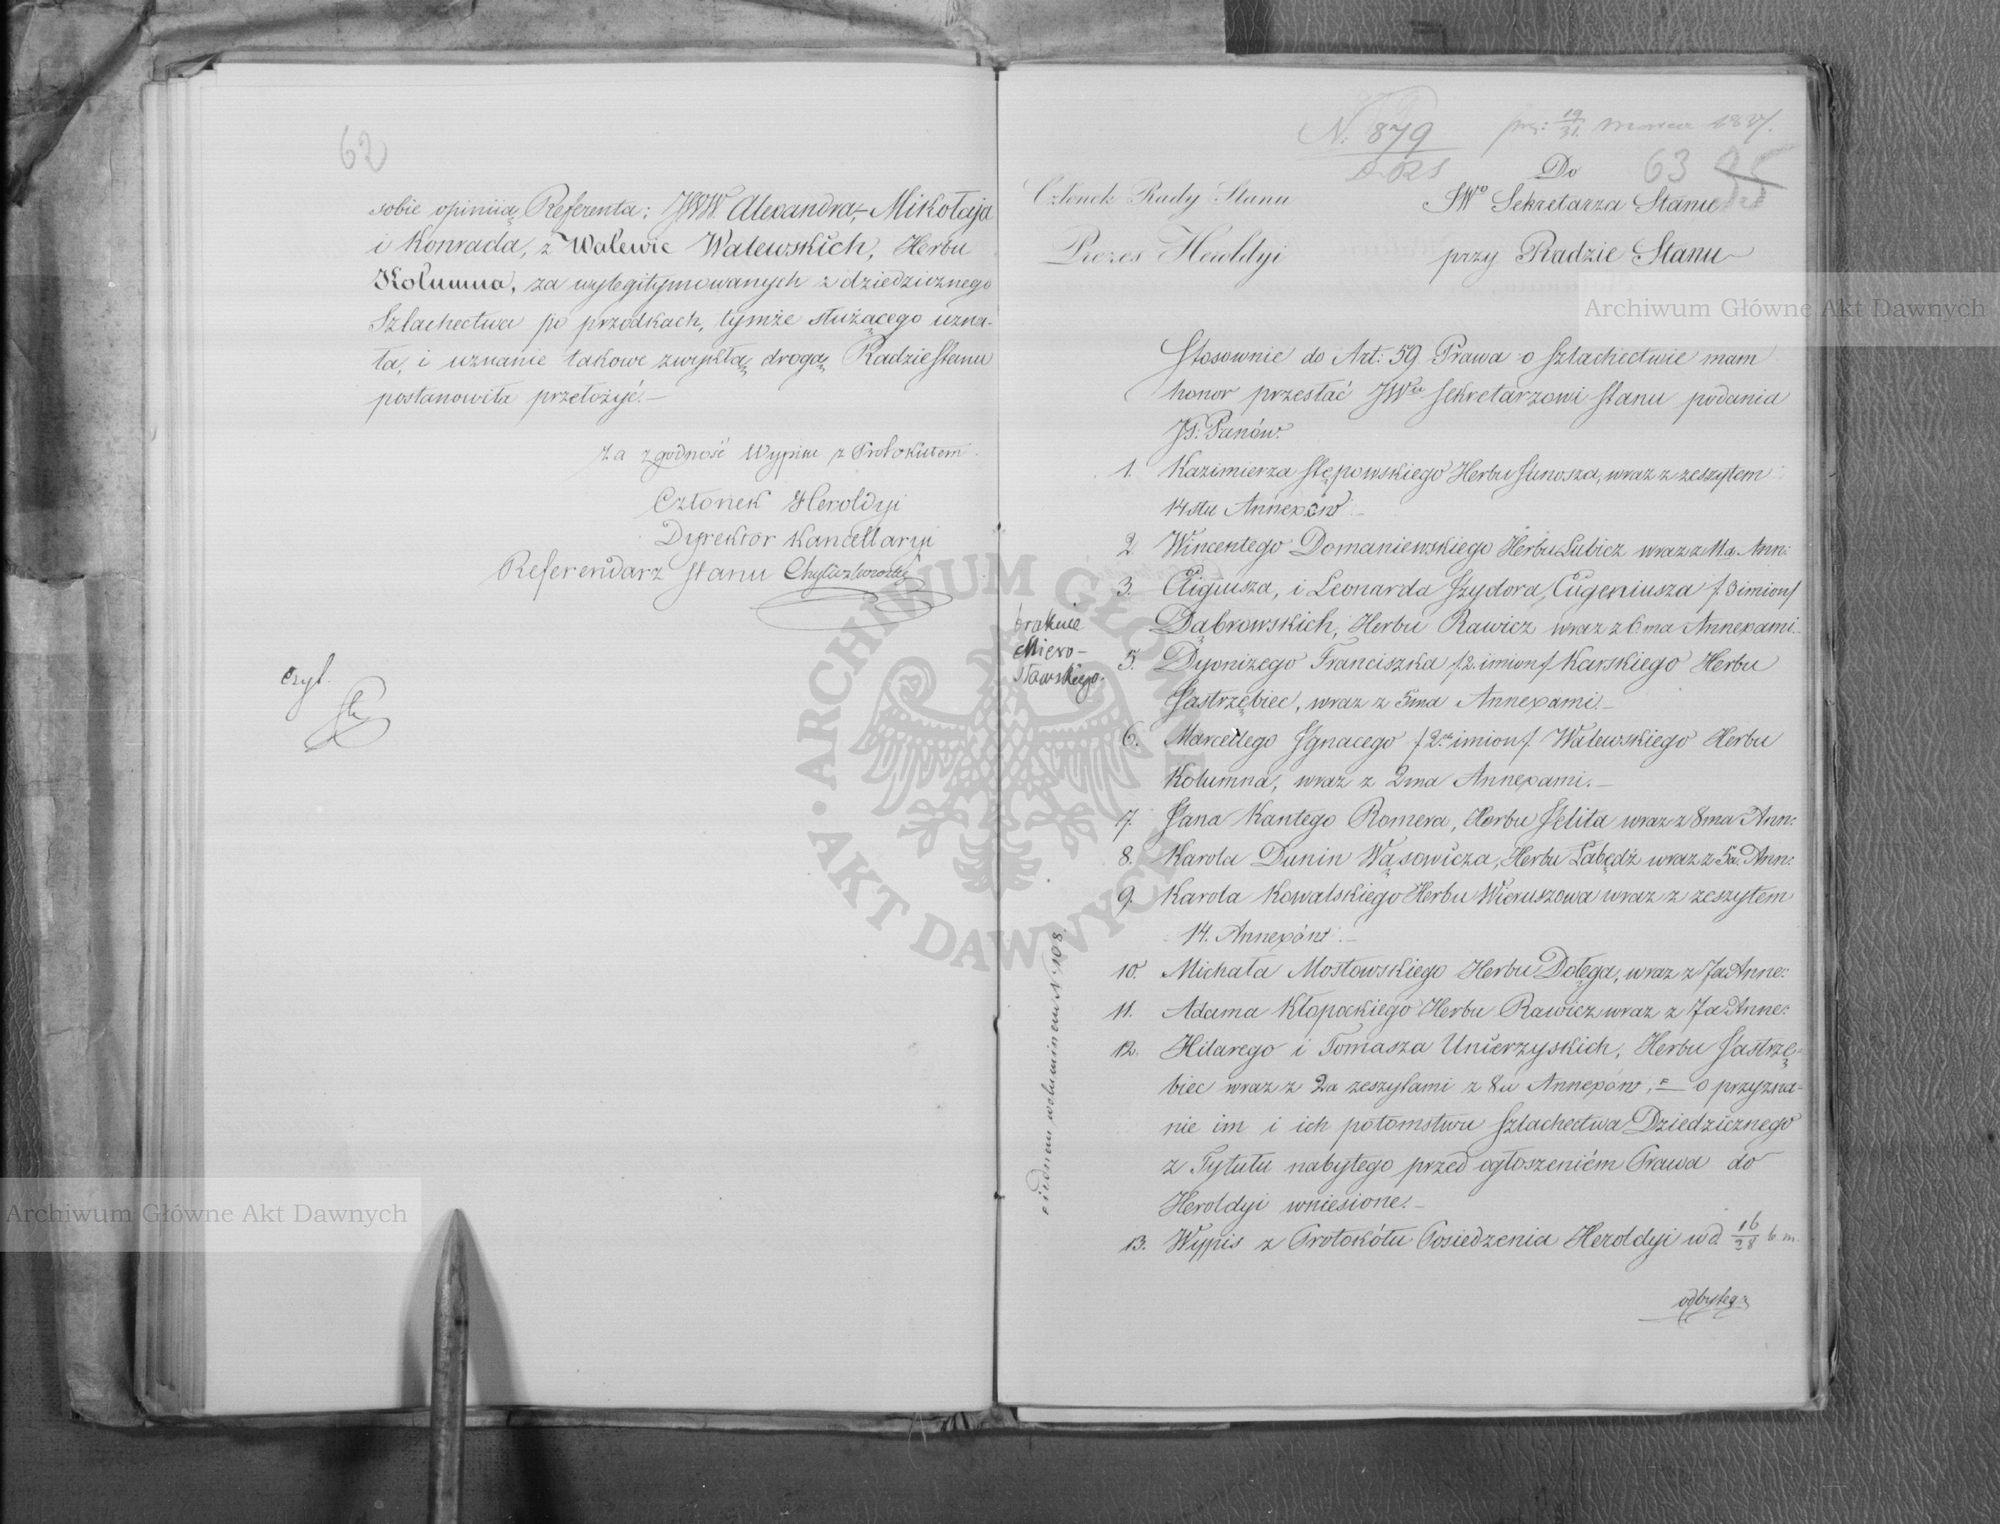 62
sobie opiniią Referenta: JWW. Alexandra, Mikołaja
i Konrada, z Walewic Walewskich, Herbu
Kolumna, za wylegitymowanych z dziedzicznego
Szlachectwa po przodkach, tymże służącego uzna-
ła, i uznanie takowe zwykłą drogą Radzie Stanu
postanowiła przełożyć.—
Za zgodność Wypisu z Protokułem
Członek Heroldyi
Dyrektor Kancellaryi
Referendarz Stanu
czyt.
N. 879
19/31 Marca 1837.
63
Członek Rady Stanu
Prezes Heroldyi
Do
JWo Sekretarza Stanu
przy Radzie Stanu
Stosownie do Art: 59 Prawa o Szlachectwie mam
honor przesłać JWu Sekretarzowi Stanu podania
JP: Panów.
1. Kazimierza Stępowskiego Herbu Junosza, wraz z zeszytem
14stu Annexów.—
2. Wincentego Domaniewskiego Herbu Lubicz wraz z Ann:
3. Eligiusza, i Leonarda Izydora, Eugeniusza /3 imion/
Dąbrowskich, Herbu Rawicz wraz z 6.ma Annexami.
brakuie
Miero-
sławskiego.
5. Dyonizego Franciszka /2. imion/ Karskiego Herbu
Jastrzębiec, wraz z 5ma Annexami.—
6. Marcellego Ignacego /2. imion/ Walewskiego Herbu
Kolumna, wraz z 2ma Annexami.—
7. Jana Kantego Romera, Herbu Jelita wraz z 8ma Ann:
8. Karola Dunin Wąsowicza, Herbu Łabędź wraz z 5a. Ann:
9. Karola Kowalskiego Herbu Wieruszowa wraz z zeszytem
14. Annexów.—
10. Michała Mostowskiego Herbu Dołęga, wraz z 7a Anne:
11. Adama Kłopockiego Herbu Rawicz wraz z 7a Anne:
12. Hilarego i Tomasza Unierzyskich, Herbu Jastrzę-
biec wraz z 2a zeszytami z 8u Annexów.— o przyzna-
nie im i ich potomstwu Szlachectwa Dziedzicznego
z Tytułu nabytego przed ogłoszeniem Prawa do
Heroldyi wniesione.—
13. Wypis z Protokółu Posiedzenia Heroldyi w d. 16/28 b. m.
odbytego
z iednem woluminem N. 108.
Archiwum Główne Akt Dawnych
Archiwum Główne Akt Dawnych
ARCHIWUM GŁÓWNE AKT DAWNYCH